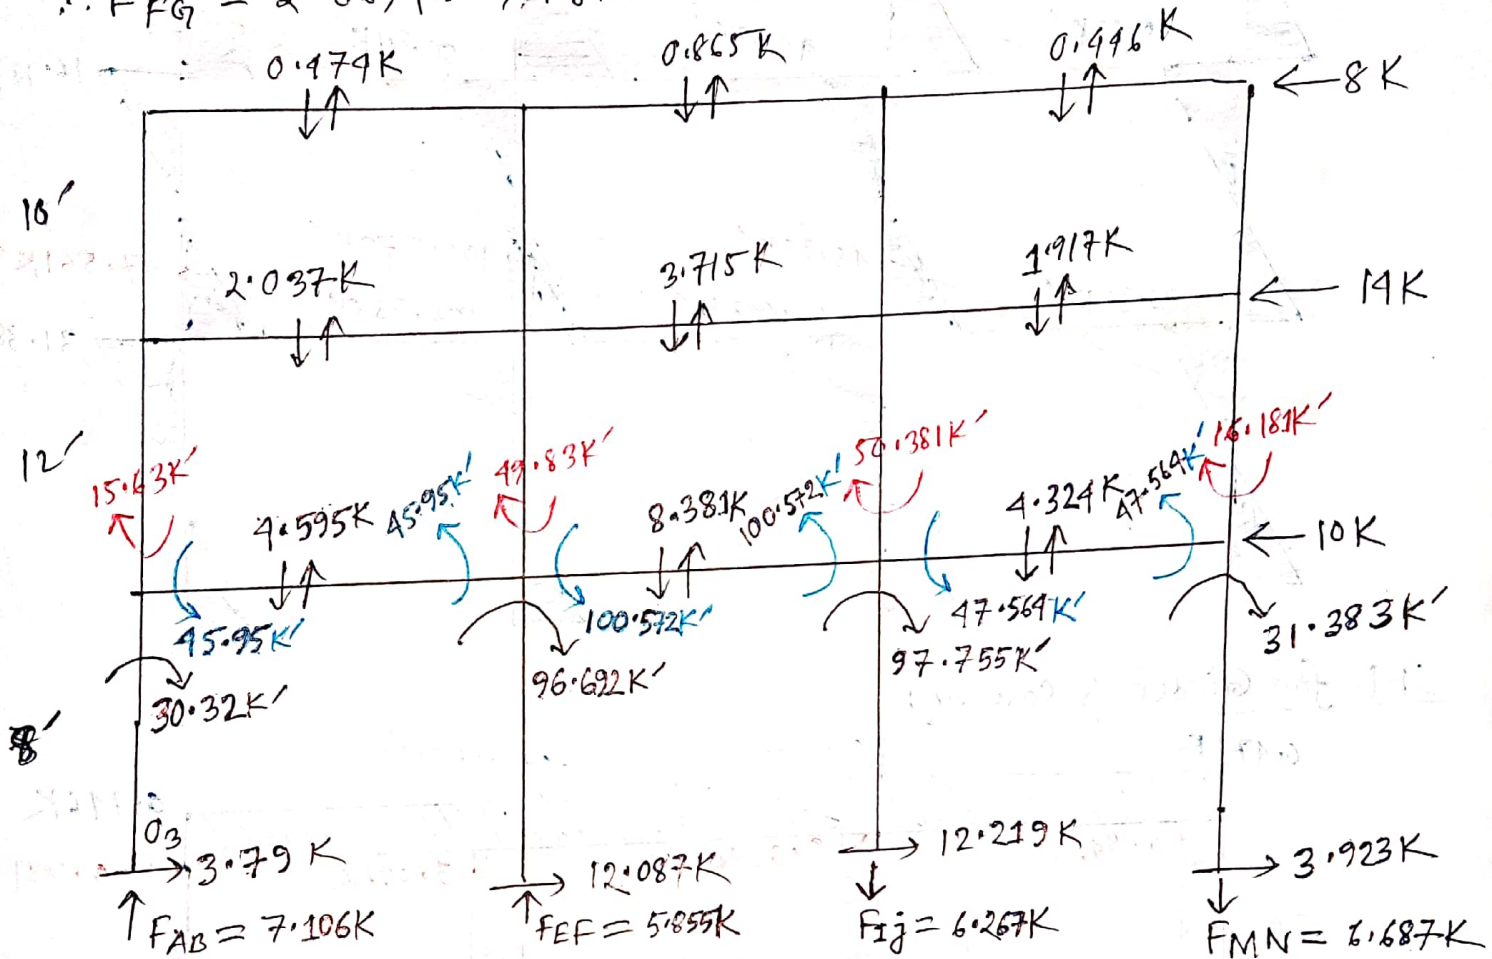 ∴ FFG = 2
0.474K
0.865K
0.446K
8K
10′
2.037K
3.715K
1.917K
14K
12′
15.63K′
4.595K
45.95K′
49.83K′
8.381K
100.572K′
50.381K′
4.324K
47.564K′
16.181K′
10K
45.95K′
100.572K′
47.564K′
31.383K′
30.32K′
96.692K′
97.755K′
8′
O3
3.79K
12.087K
12.219K
3.923K
FAB = 7.106K
FEF = 5.855K
FIj = 6.267K
FMN = 6.687K